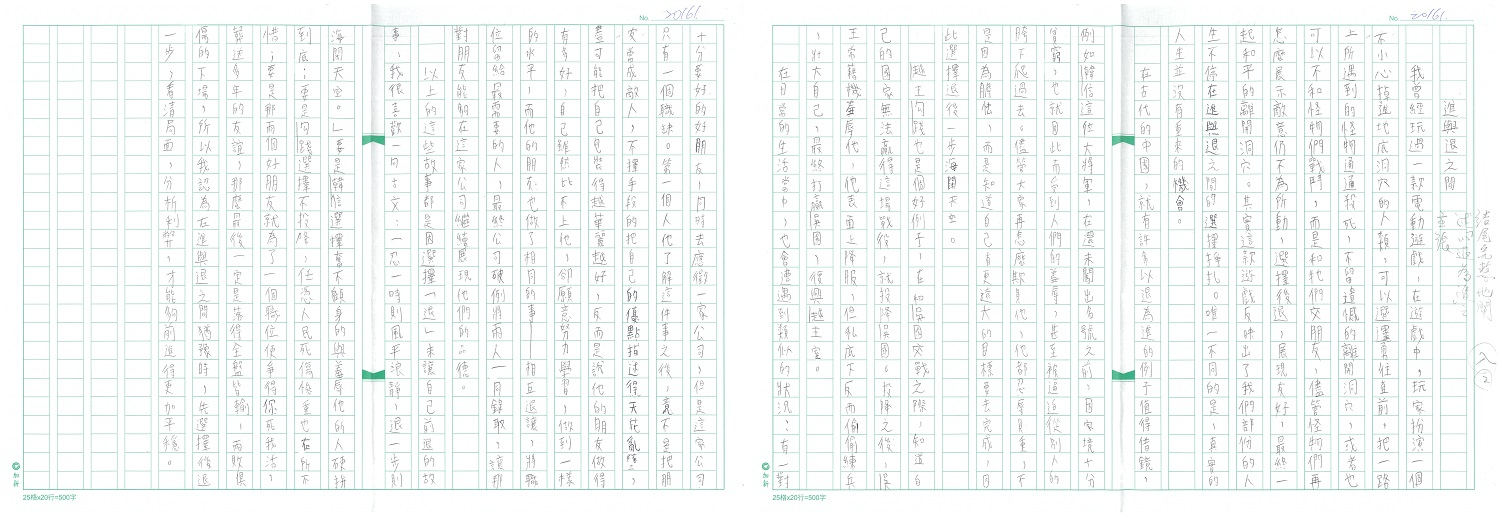 No. 20161
進與退之間
我曾經玩過一款電動遊戲，在遊戲中，玩家扮演一個
不小心掉進地底洞穴的人類，可以選擇勇往直前，把一路
上所遇到的怪物通通殺死，不留遺憾的離開洞穴，或者也
可以不和怪物們戰鬥，而是和牠們交朋友，儘管怪物們再
怎麼展示敵意仍不為所動，選擇後退，展現友好，最終一
起和平的離開洞穴。其實這款遊戲反映出了我們部份的人
生不停在進與退之間的選擇掙扎。唯一不同的是，真實的
人生並沒有重來的機會。
在古代的中國，就有許多以退為進的例子值得借鏡，
例如韓信這位大將軍，在還未闖出名號之前，因家境十分
貧窮，也就因此而受到人們的羞辱，甚至被逼迫從別人的
胯下爬過去。儘管大家再怎麼欺負他，他都忍辱負重，不
是因為膽怯，而是知道自己有更遠大的目標要去完成，因
此選擇退後一步海闊天空。
越王勾踐也是個好例子，在和吳國交戰之際，知道自
己的國家無法贏得這場戰役，就投降吳國。投降之後，吳
王常藉機羞辱他，他表面上降服，但私底下反而偷偷練兵
，壯大自己，最終打贏吳國，復興越王室。
在日常的生活當中，也會遭遇到類似的狀況：有一對
結尾竟然他開
出以退為進
主流
入②
25格x20行=500字
加新
No. 20161
十分要好的好朋友，同時去應徵一家公司，但是這家公司
只有一個職缺。第一個人他了解這件事之後，竟不是把朋
友當成敵人，不擇手段的把自己的優點描述得天花亂墜，
盡可能把自己包裝得越華麗越好，反而是說他的朋友做得
有多好，自己雖然比不上他，卻願意努力學習，做到一樣
的水平，而他的朋友也做了相同的事──相互退讓，將職
位留給最需要的人，最終公司破例將兩人一同錄取，讓那
對朋友能夠在這家公司繼續展現他們的品德。
以上的這些故事都是因選擇「退」來讓自己前進的故
事，我很喜歡一句古文：「忍一時則風平浪靜，退一步則
海闊天空。」要是韓信選擇奮不顧身的與羞辱他的人硬拚
到底；要是勾踐選擇不投降，任憑人民死傷慘重也在所不
惜；要是那兩個好朋友就為了一個職位便爭得你死我活，
葬送多年的友誼，那麼最後一定是落得全盤皆輸，兩敗俱
傷的下場，所以我認為在進與退之間猶豫時，先選擇後退
一步，看清局面，分析利弊，才能夠前進得更加平穩。
25格x20行=500字
加新